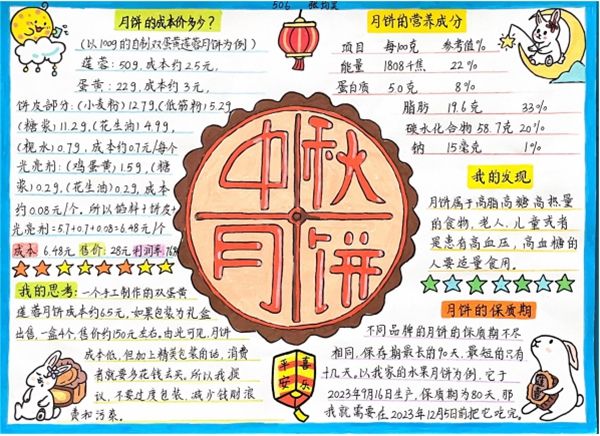 506 张筠昊
月饼的成本价多少?
(以100g的自制双蛋黄莲蓉月饼为例)
莲蓉:50g,成本约2.5元,
蛋黄:22g,成本约3元,
饼皮部分:(小麦粉)12.7g,(低筋粉)5.2g
(糖浆)11.2g,(花生油)4.9g,
(枧水)0.7g,成本约0.7元/每个
光亮剂:(鸡蛋黄)1.5g,(糖
浆)0.2g,(花生油)0.2g,成本
约0.08元/个。所以馅料+饼皮+
光亮剂=5.7+0.7+0.08=6.48元/个
成本:6.48元,售价:28元,利润率:76%
我的思考:一个手工制作的双蛋黄
莲蓉月饼成本约6.5元,如果包装为礼盒
出售,一盒4个,售价约150元左右。由此可见,月饼
成本低,但加上精美包装的话,消费
者就要多花钱去买。所以我提
议,不要过度包装,减少钱财浪
费和污染。
中秋
月饼
平安
喜乐
月饼的营养成分
项目 每100克 参考值%
能量 1808千焦 22%
蛋白质 5.0克 8%
脂肪 19.6克 33%
碳水化合物 58.7克 20%
钠 15毫克 1%
我的发现
月饼属于高脂高糖高热量
的食物,老人、儿童或者
是患有高血压,高血糖的
人要适量食用。
月饼的保质期
不同品牌的月饼的保质期不尽
相同,保存期最长的90天,最短的只有
十几天。以我家的水果月饼为例,它于
2023年9月16日生产,保质期为80天,那
我就需要在2023年12月5日前把它吃完。